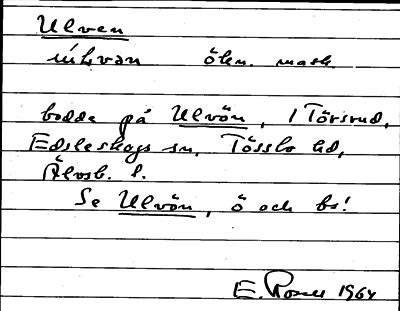 Ulven
úlvan ökn. mask.
bodde på Ulvön, i Törsrud,
Edsleskogs sn, Tössbo hd,
Älvsb. l.
Se Ulvön, ö och bs!
E. Rosell 1964